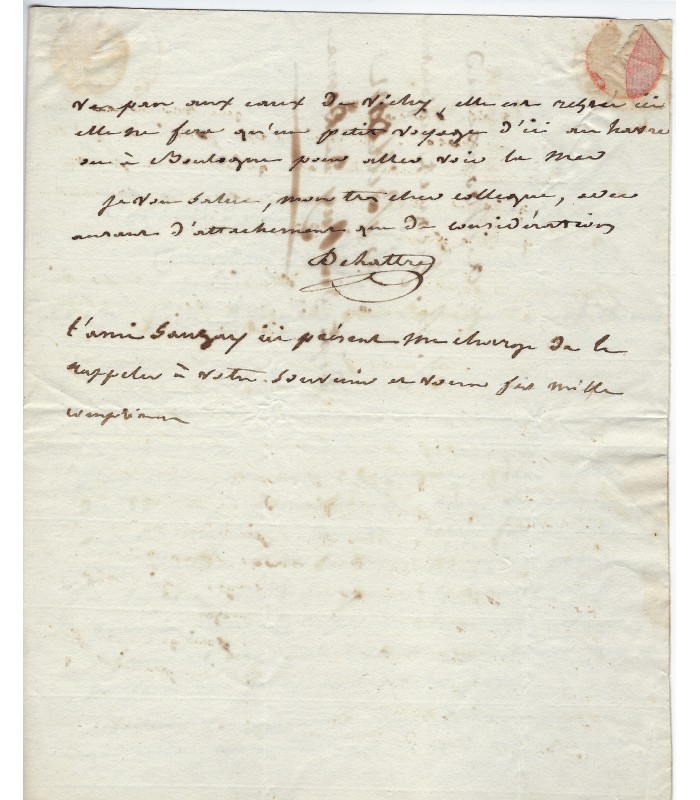 va pas aux eaux de vichy, elle est restée ici
elle ne fera qu'un petit voyage d'ici au havre
ou à Boulogne pour aller voir la mer
je vous salue, mon très cher collegue, avec
autant d'attachement que de considération
Dehattre
l'ami Sauzay ici présent me charge de le
rappeler à votre souvenir et vous fait mille
complimens